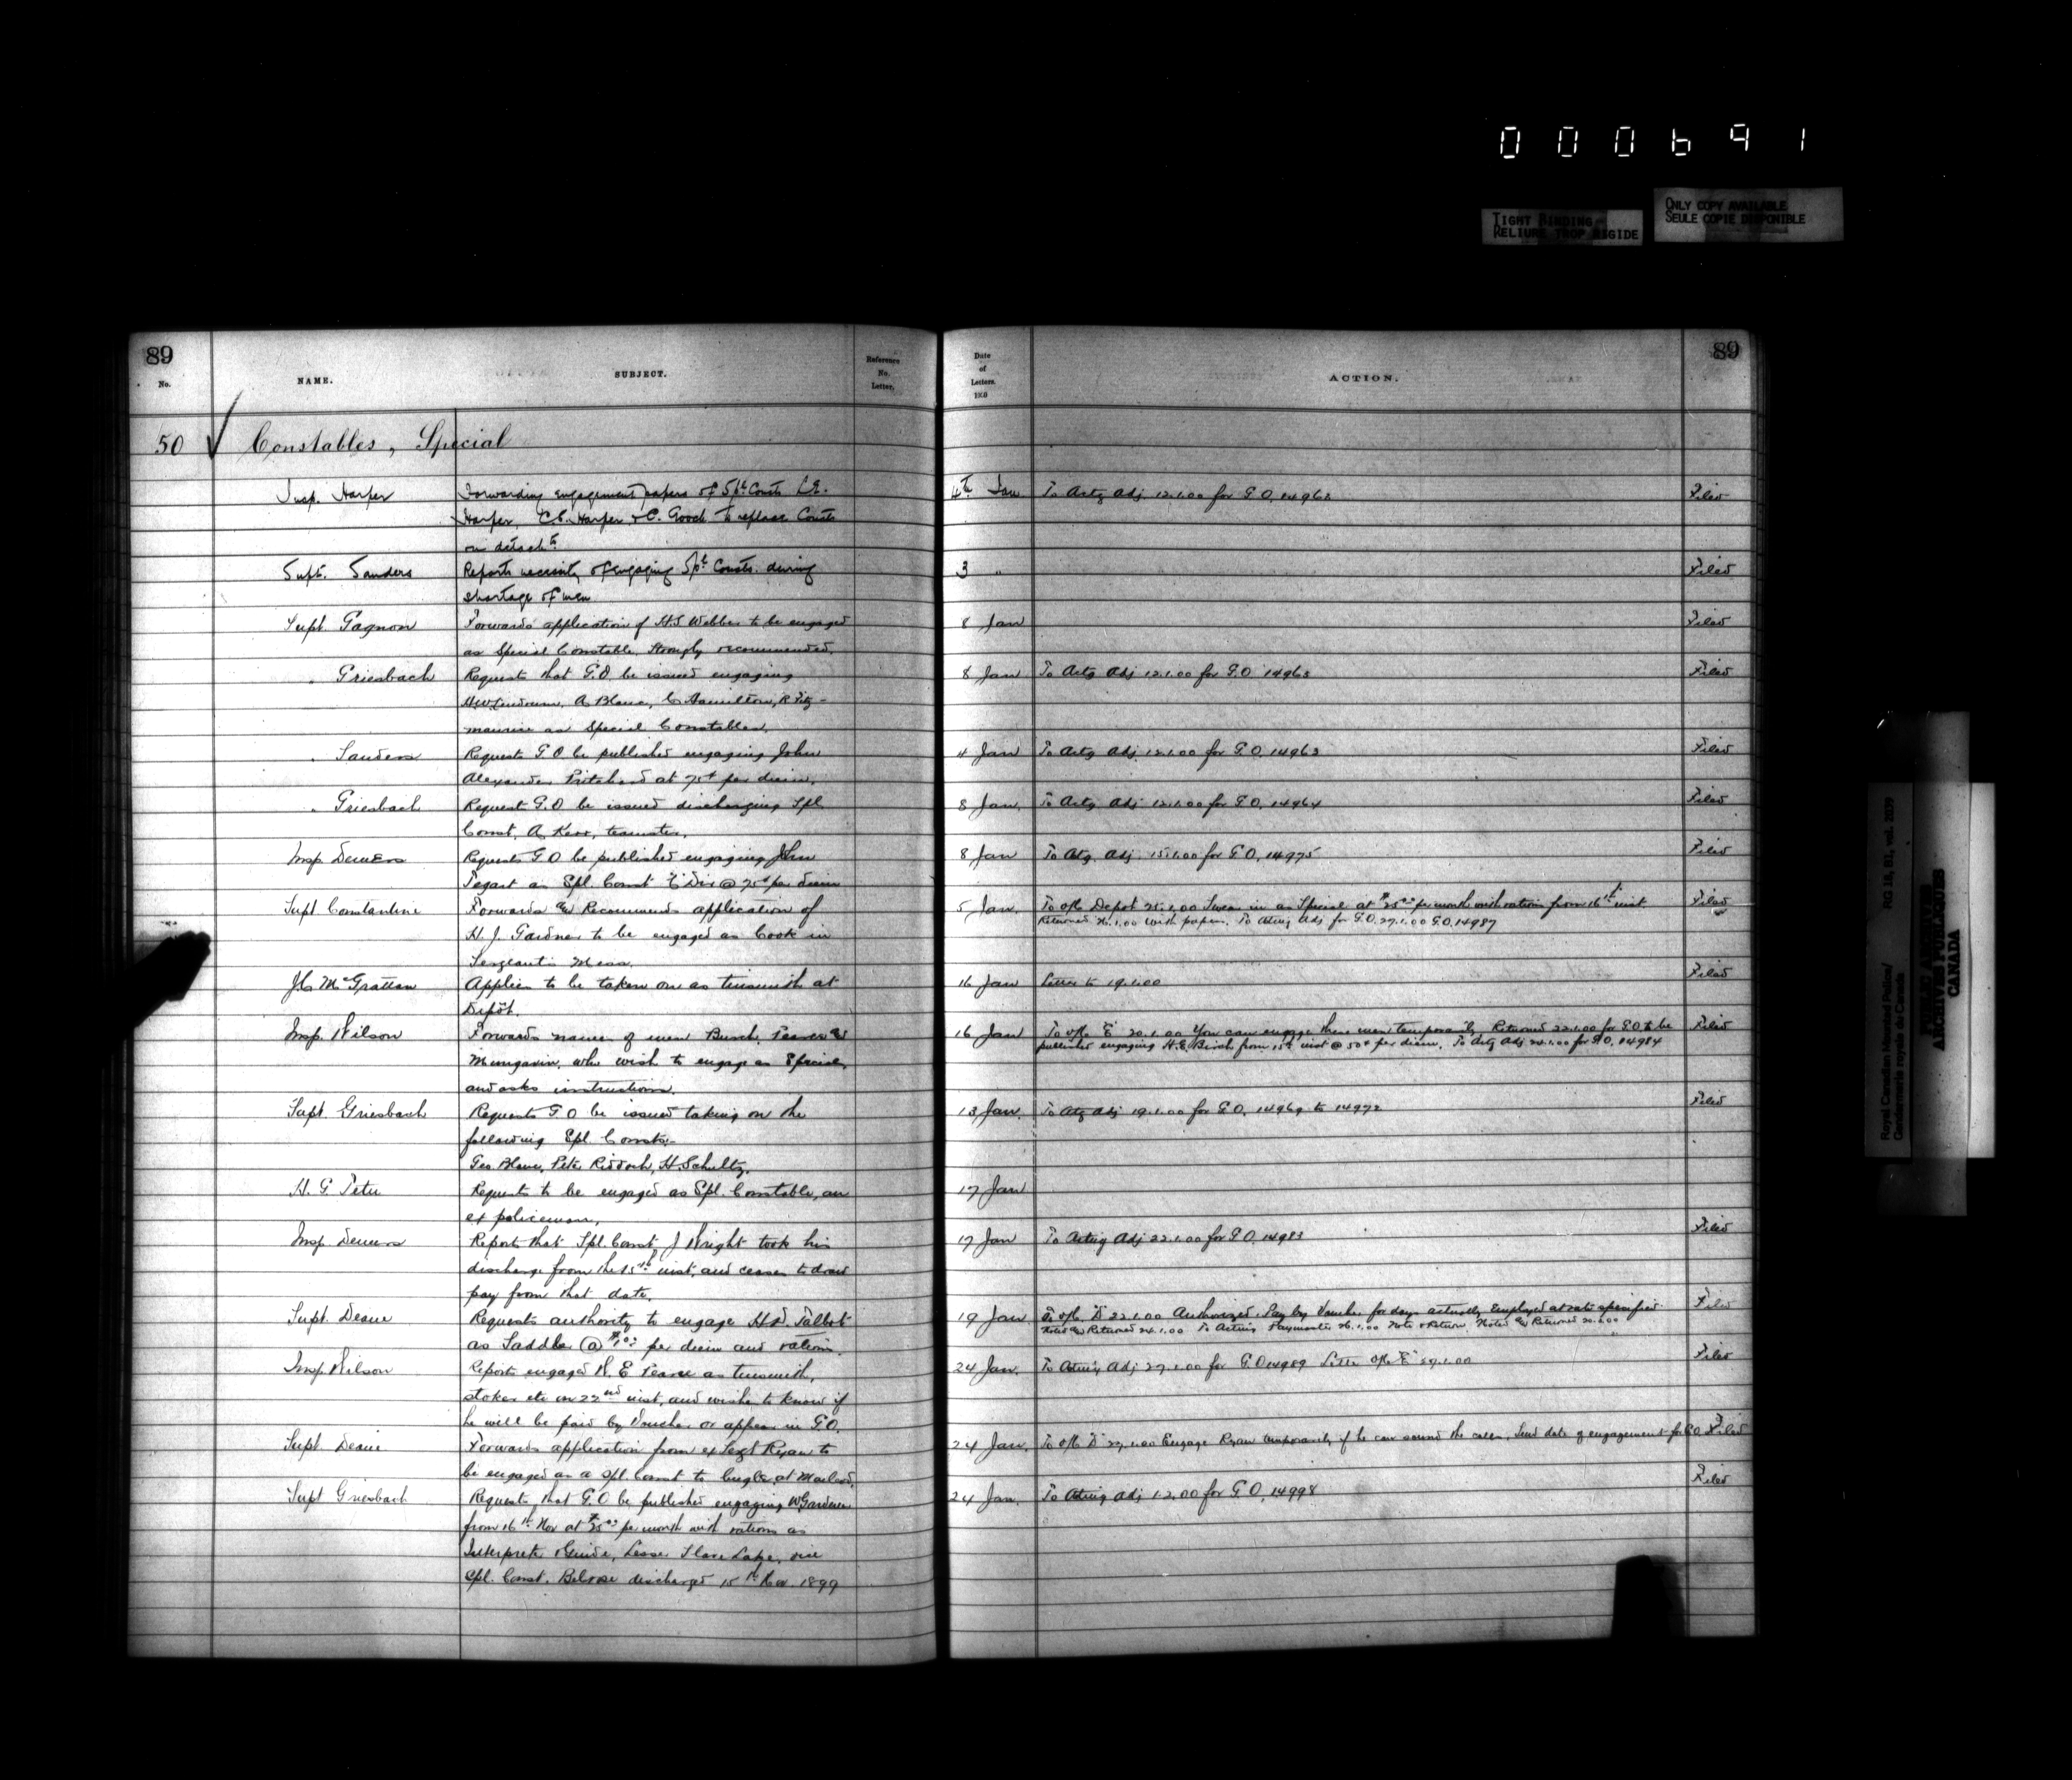 000691
TIGHT BINDING
RELIURE TROP RIGIDE
ONLY COPY AVAILABLE
SEULE COPIE DISPONIBLE
89
No.
NAME.
SUBJECT.
Reference
No.
Letter.
50 Constables, Special
Insp. Harper
Forwarding engagement papers of Spl. Consts L.E.
Harper, C.E. Harper & C. Gooch to replace Consts
on detacht.
Supt. Sanders
Reports necessity of engaging Spl. Consts. during
shortage of men
Supt. Gagnon
Forwards application of H.S Webber to be engaged
as Special Constable. Strongly recommended.
" Griesbach
Requests that G.O be issued engaging
A Blanc, C Hamilton, R Fitz-
maurice as Special Constables.
" Sanders
Requests G.O be published engaging John
Alexander Pritchard at 75¢ per diem.
" Griesbach
Request G.O be issued discharging Spl.
Const. A Kerr, teamster.
Insp Demers
Requests G O be published engaging John
Tegart as Spl. Const "E" Div @ 75¢ per diem
Supt Constantine
Forwards and Recommends application of
H. J. Gardner to be engaged as Cook in
Sergeants Mess.
J.C. McGrattan
Applies to be taken on as tinsmith at
Depôt.
Insp. Wilson
Forwards names of men Burch, Pearce and
Mungavin, who wish to engage as Specials
and asks instructions.
Supt. Griesbach
Requests G O be issued taking on the
following Spl. Consts:-
Geo. Blanc, Peter Riddoch, H. Schultz.
H. G. Peter
Requests to be engaged as Spl. Constable, an
ex policeman.
Insp Demers
Reports that Spl. Const J Wright took his
discharge from the 15th inst, and ceases to draw
pay from that date.
Supt. Deane
Requests authority to engage H.D. Talbot
as Saddler @ per diem and rations.
Insp Wilson
Reports engaged W. E Pearce as tinsmith,
stoker etc on 22nd inst, and wishes to know if
he will be paid by Voucher or appear in G.O.
Supt. Deane
Forwards application from ex Sergt Ryan to
be engaged as a Spl. Const to bugle at Macleod.
Supt Griesbach
Requests that G.O be published engaging W Gardener
from 16th Nov at $25.00 per month with rations as
Interpreter & Guide, Lesser Slave Lake, vice
Spl. Const. Belrose discharged 15th Nov. 1899
89
Date
of
Letters.
ACTION.
4th Jan To Actg Adj 12.1.00 for G.O. 14962 Filed
3 " Filed
8 Jan Filed
8 Jan To Actg Adj 12.1.00 for G.O 14963 Filed
4 Jan To Actg Adj 12.1.00 for G.O. 14963 Filed
8 Jan. To Actg Adj 12.1.00 for G.O. 14964 Filed
8 Jan To Actg. Adj. 15.1.00 for G.O. 14975 Filed
5 Jan. To offr Depot 25.1.00 Swear in as Special at $25.00 per month with rations from 16th inst. Filed
Returned 26.1.00 with papers. To Acting Adj for G.O. 27.1.00 G.O. 14987
16 Jan Letter to 19.1.00 Filed
16 Jan To offr "E" 20.1.00 You can engage these men temporarily Returned 22.1.00 for G.O to be Filed
published engaging H.E. Birch from 15th inst @ 50¢ per diem. To Actg Adj 24.1.00 for G.O. 14984
13 Jan. To Actg Adj 19.1.00 for G.O. 14969 to 14972 Filed
17 Jan
17 Jan To Acting Adj 22.1.00 for G.O. 14983 Filed
19 Jan To offr. "D" 22.1.00 Authorized. Pay by Voucher for days actually employed at rate specified. Filed
Noted and Returned 24.1.00 To Acting Paymaster 26.1.00 Note & Return. Noted and Returned
24 Jan. To Acting Adj 27.1.00 for G.O 14989 Letter offr "E" 27.1.00 Filed
24 Jan. To offr "D" 29.1.00 Engage Ryan temporarily if he can sound the calls. Send date of engagement for G.O Filed
24 Jan. To Acting Adj 1.2.00 for G.O. 14998 Filed
Royal Canadian Mounted Police/
Gendarmerie royale du Canada
RG 18, B1, vol. 2039
PUBLIC ARCHIVES
ARCHIVES PUBLIQUES
CANADA